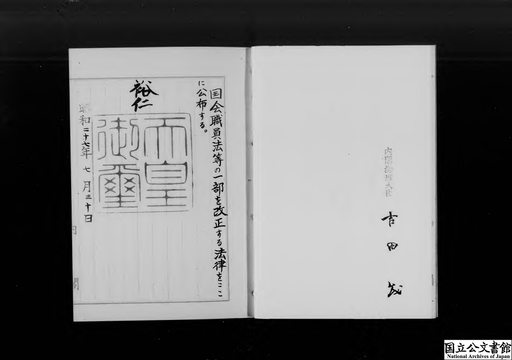 国会職員法等の一部を改正する法律をここ
に公布する。
裕仁
天皇
御璽
昭和二十七年 七月三十日
内閣
内閣総理大臣
吉田茂
国立公文書館
National Archives of Japan